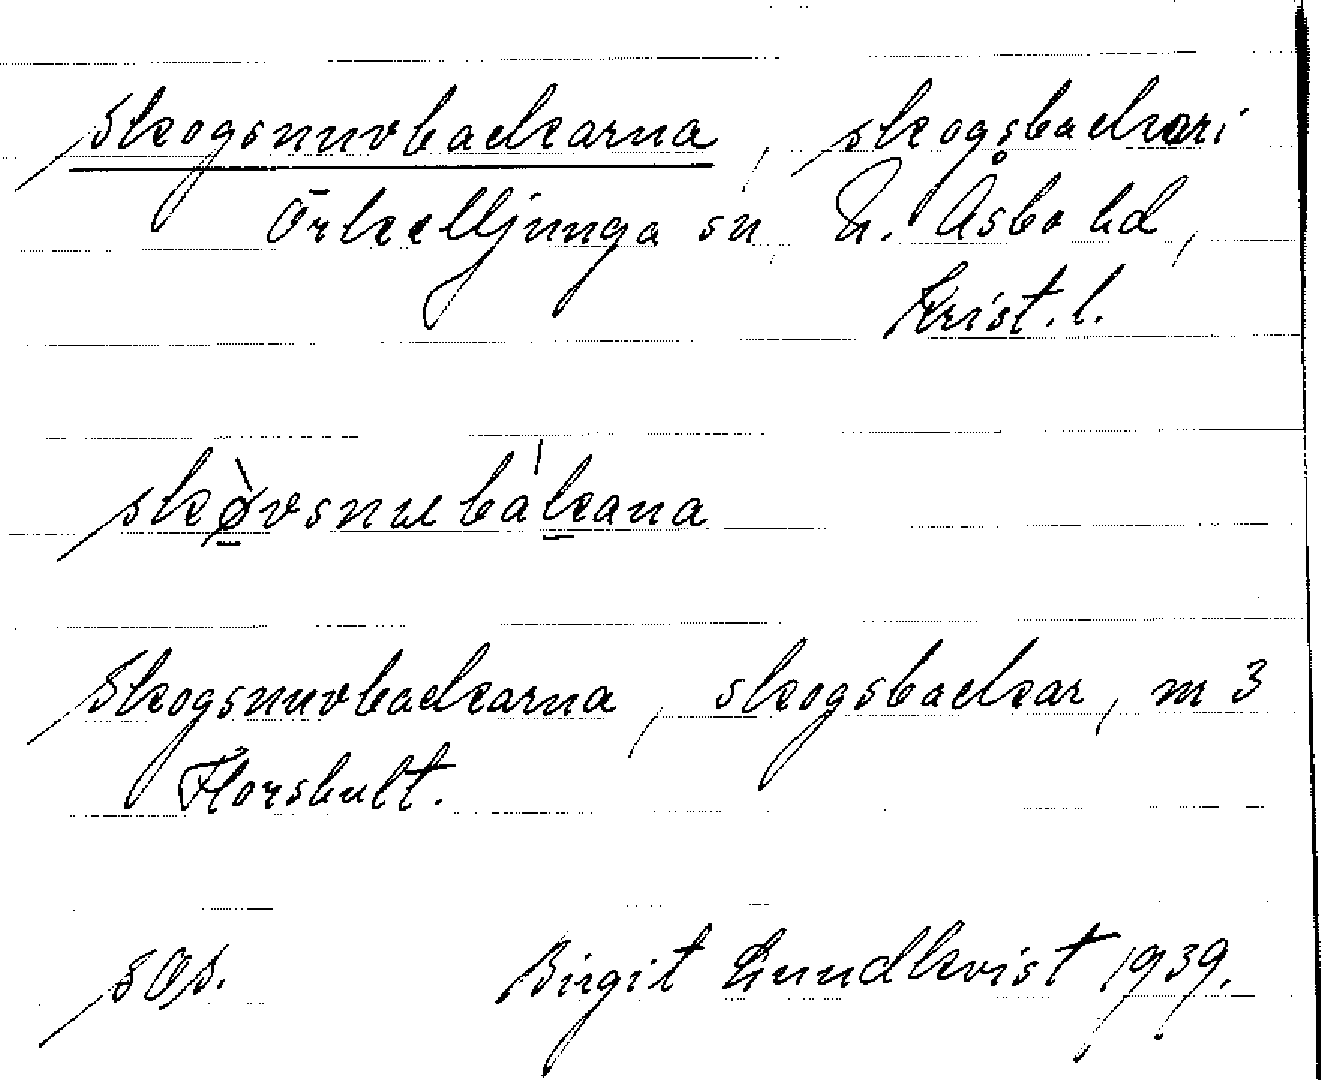 Skogsnuvbackarna, skogsbackari
Örkelljunga sn, N. Åsbo hd,
Krist. l.
skø̀vsnuebákana
Skogsnuvbackarna, skogsbackar, m 3
Florshult.
sos. Birgit Lundkvist 1939.